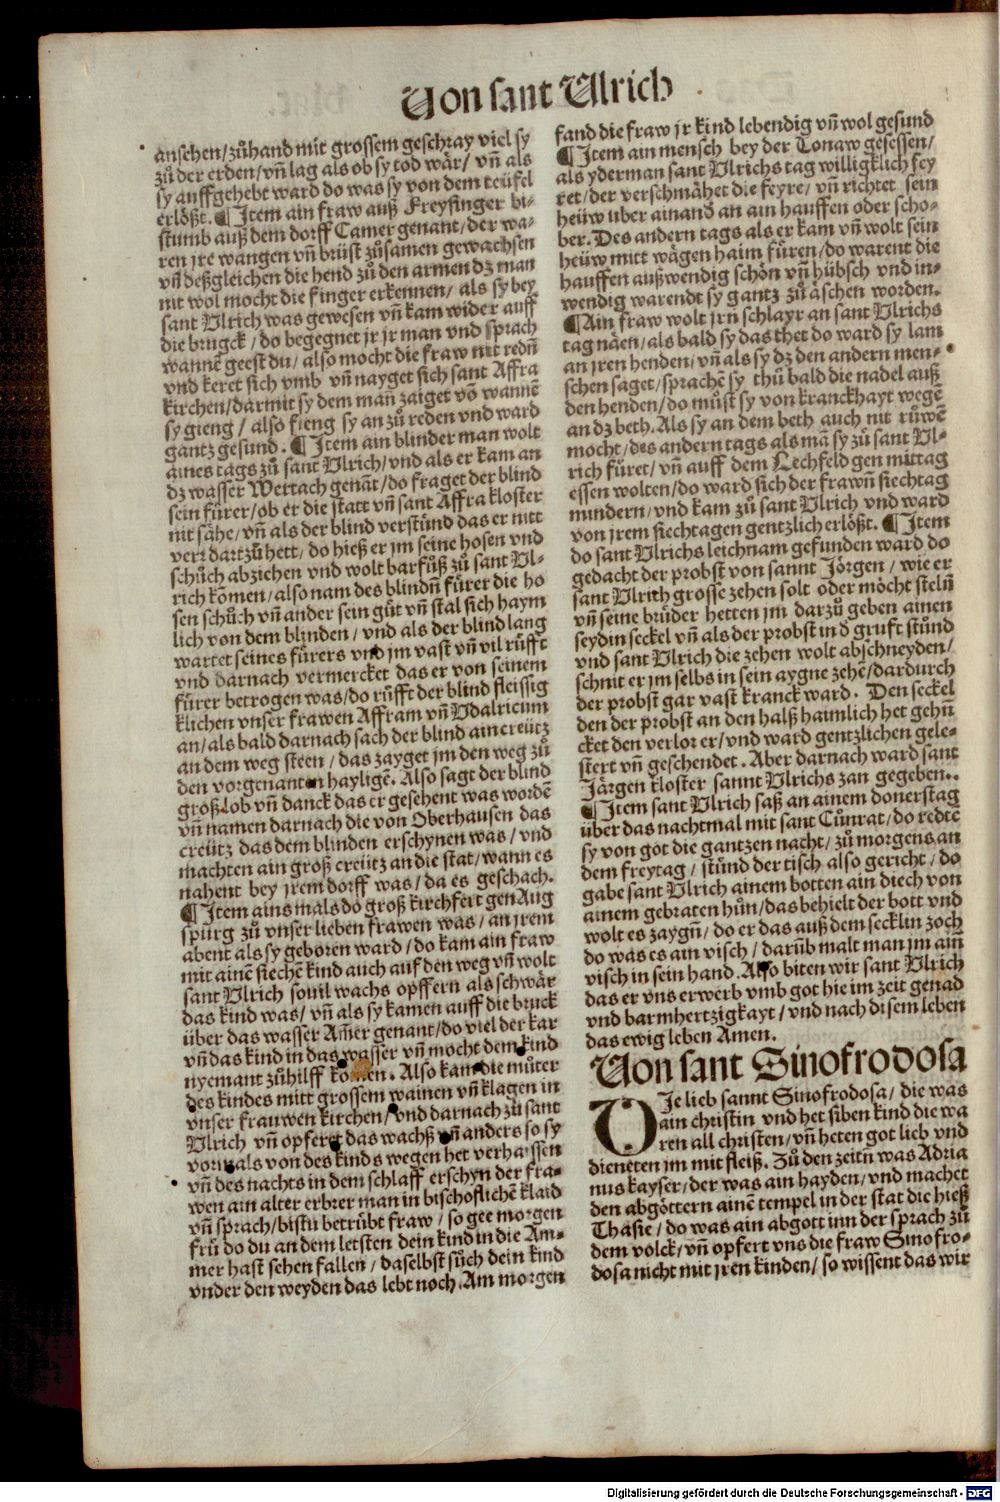 Von sant Ulrich
ansehen/zůhand mit grossem geschray viel sy
zů der erden/vñ lag als ob sy tod wår/ vñ als
sy auffgehebt ward do was sy von dem teüfel
erlößt. ¶ Item ain fraw auß Freysinger bi-
stumb auß dem dorff Camer genant/der wa-
ren jre wangen vñ brüst zůsamen gewachsen
vñ deßgleichen die hend zů den armen dz man
nit wol mocht die finger erkennen/ als sy bey
sant Vlrich was gewesen vñ kam wider auff
die brugck/do begegnet jr jr man vnd sprach
wannẽ geest du/also mocht die fraw nit redñ
vnd keret sich vmb vñ nayget sich sant Affra
kirchen/darmit sy dem mañ zaiget võ wannẽ
sy gieng/ also fieng sy an zů reden vnd ward
gantz gesund. ¶ Item ain blinder man wolt
aines tags zů sant Vlrich/vnd als er kam an
dz wasser Wertach genãt/do fraget der blind
sein fürer/ob er die statt vñ sant Affra kloster
nit såhe/vñ als der blind verstůnd das er nitt
verr dartzů hett/do hieß er jm seine hosen vnd
schůch abziehen vnd wolt barfůß zů sant Vl-
rich kõmen/also nam des blindñ fürer die ho
sen schůch vñ ander sein gůt vñ stal sich haym
lich von dem blinden/vnd als der blind lang
wartet seines fürers vnd jm vast vñ vil rüfft
vnd darnach vermercket das er von seinem
fürer betrogen was/do rüfft der blind fleissig
klichen vnser frawen Affram vñ Vdalricum
an/als bald darnach sach der blind ain creütz
an dem weg steen/das zayget jm den weg zů
den vorgenanten hayligẽ. Also sagt der blind
groß lob vñ danck das er gesehent was wordẽ
vñ namen darnach die von Oberhausen das
creütz das dem blinden erschynen was/vnd
machten ain groß creütz an die stat/wann es
nahent bey jrem dorff was/da es geschach.
¶ Item ains mals do groß kirchfert gen Aug
spurg zů vnser lieben frawen was/an jrem
abent als sy geboren ward/do kam ain fraw
mit ainẽ siechẽ kind auch auf den weg vñ wolt
sant Vlrich souil wachs opffern als schwår
das kind was/vñ als sy kamen auff die bruck
über das wasser Am̃er genant/do viel der kar
vñ das kind in das wasser vñ mocht dem kind
nyemant zůhilff komen. Also kam die můter
des kindes mitt grossem wainen vñ klagen in
vnser frauwen kirchen/vnd darnach zů sant
Vlrich vñ opferet das wachß vñ anders so sy
vormals von des kinds wegen het verhaissen
vñ des nachts in dem schlaff erschyn der fra-
wen ain alter erbrer man in bischoflichẽ klaid
vñ sprach/bistu betrübt fraw/so gee morgen
frů do du an dem letsten dein kind in die Am-
mer hast sehen fallen/daselbst sůch dein kind
vnder den weyden das lebt noch. Am morgen
fand die fraw jr kind lebendig vñ wol gesund
¶ Item ain mensch bey der Tonaw gesessen/
als yderman sant Vlrichs tag willigklich fey
ret/der verschmåhet die feyre/vñ richtet sein
heüw über ainand̾ an ain hauffen oder scho-
ber. Des andern tags als er kam vñ wolt sein
heüw mitt wågen haim füren/do warent die
hauffen außwendig schön vñ hübsch vnd in-
wendig warendt sy gantz zů åschen worden.
¶ Ain fraw wolt jrn schlayr an sant Vlrichs
tag nåen/als bald sy das thet do ward sy lam
an jren henden/vñ als sy dz den andern men-
schen saget/sprachẽ sy thů bald die nadel auß
den henden/do můst sy von kranckhayt wegẽ
an dz beth. Als sy an dem beth auch nit růwẽ
mocht/des andern tags als mã sy zů sant Vl-
rich füret/vñ auff dem Lechfeld gen mittag
essen wolten/do ward sich der frawñ siechtag
mindern/vnd kam zů sant Vlrich vnd ward
von jrem siechtagen gentzlich erlößt. ¶ Item
do sant Vlrichs leichnam gefunden ward do
gedacht der probst von sannt Jörgen/wie er
sant Vlrich grosse zehen solt oder möcht stelñ
vñ seine brüder hetten jm darzů geben ainen
seydin seckel vñ als der probst in d̾ gruft stůnd
vnd sant Vlrich die zehen wolt abschneyden/
schnit er jm selbs in sein aygne zehẽ/dardurch
der probst gar vast kranck ward. Den seckel
den der probst an den halß haimlich het gehñ
cket den verlor er/vnd ward gentzlichen gele-
stert vñ geschendet. Aber darnach ward sant
Jårgen kloster sannt Vlrichs zan gegeben..
¶ Item sant Vlrich saß an ainem donerstag
über das nachtmal mit sant Cůnrat/do redte
sy von got die gantzen nacht/zů morgens an
dem freytag/stůnd der tisch also gericht/do
gabe sant Vlrich ainem botten ain diech von
ainem gebraten hůn/das behielt der bott vnd
wolt es zaygñ/do er das auß dem secklin zoch
do was es ain visch/darüb malt man jm aiñ
visch in sein hand. Also biten wir sant Vlrich
das er vns erwerb vmb got hie im zeit genad
vnd barmhertzigkayt/vnd nach disem leben
das ewig leben Amen.
Von sant Sinofrodosa
DJe lieb sannt Sinofrodosa/die was
ain christin vnd het siben kind die wa
ren all christen/vñ heten got lieb vnd
dieneten jm mit fleiß. Zů den zeitñ was Adria
nus kayser/der was ain hayden/vnd machet
den abgöttern ainẽ tempel in der stat die hieß
Thasie/do was ain abgott inn der sprach zů
dem volck/vñ opfert vns die fraw Sinofro-
dosa nicht mit jren kinden/so wissent das wir
Digitalisierung gefördert durch die Deutsche Forschungsgemeinschaft - DFG